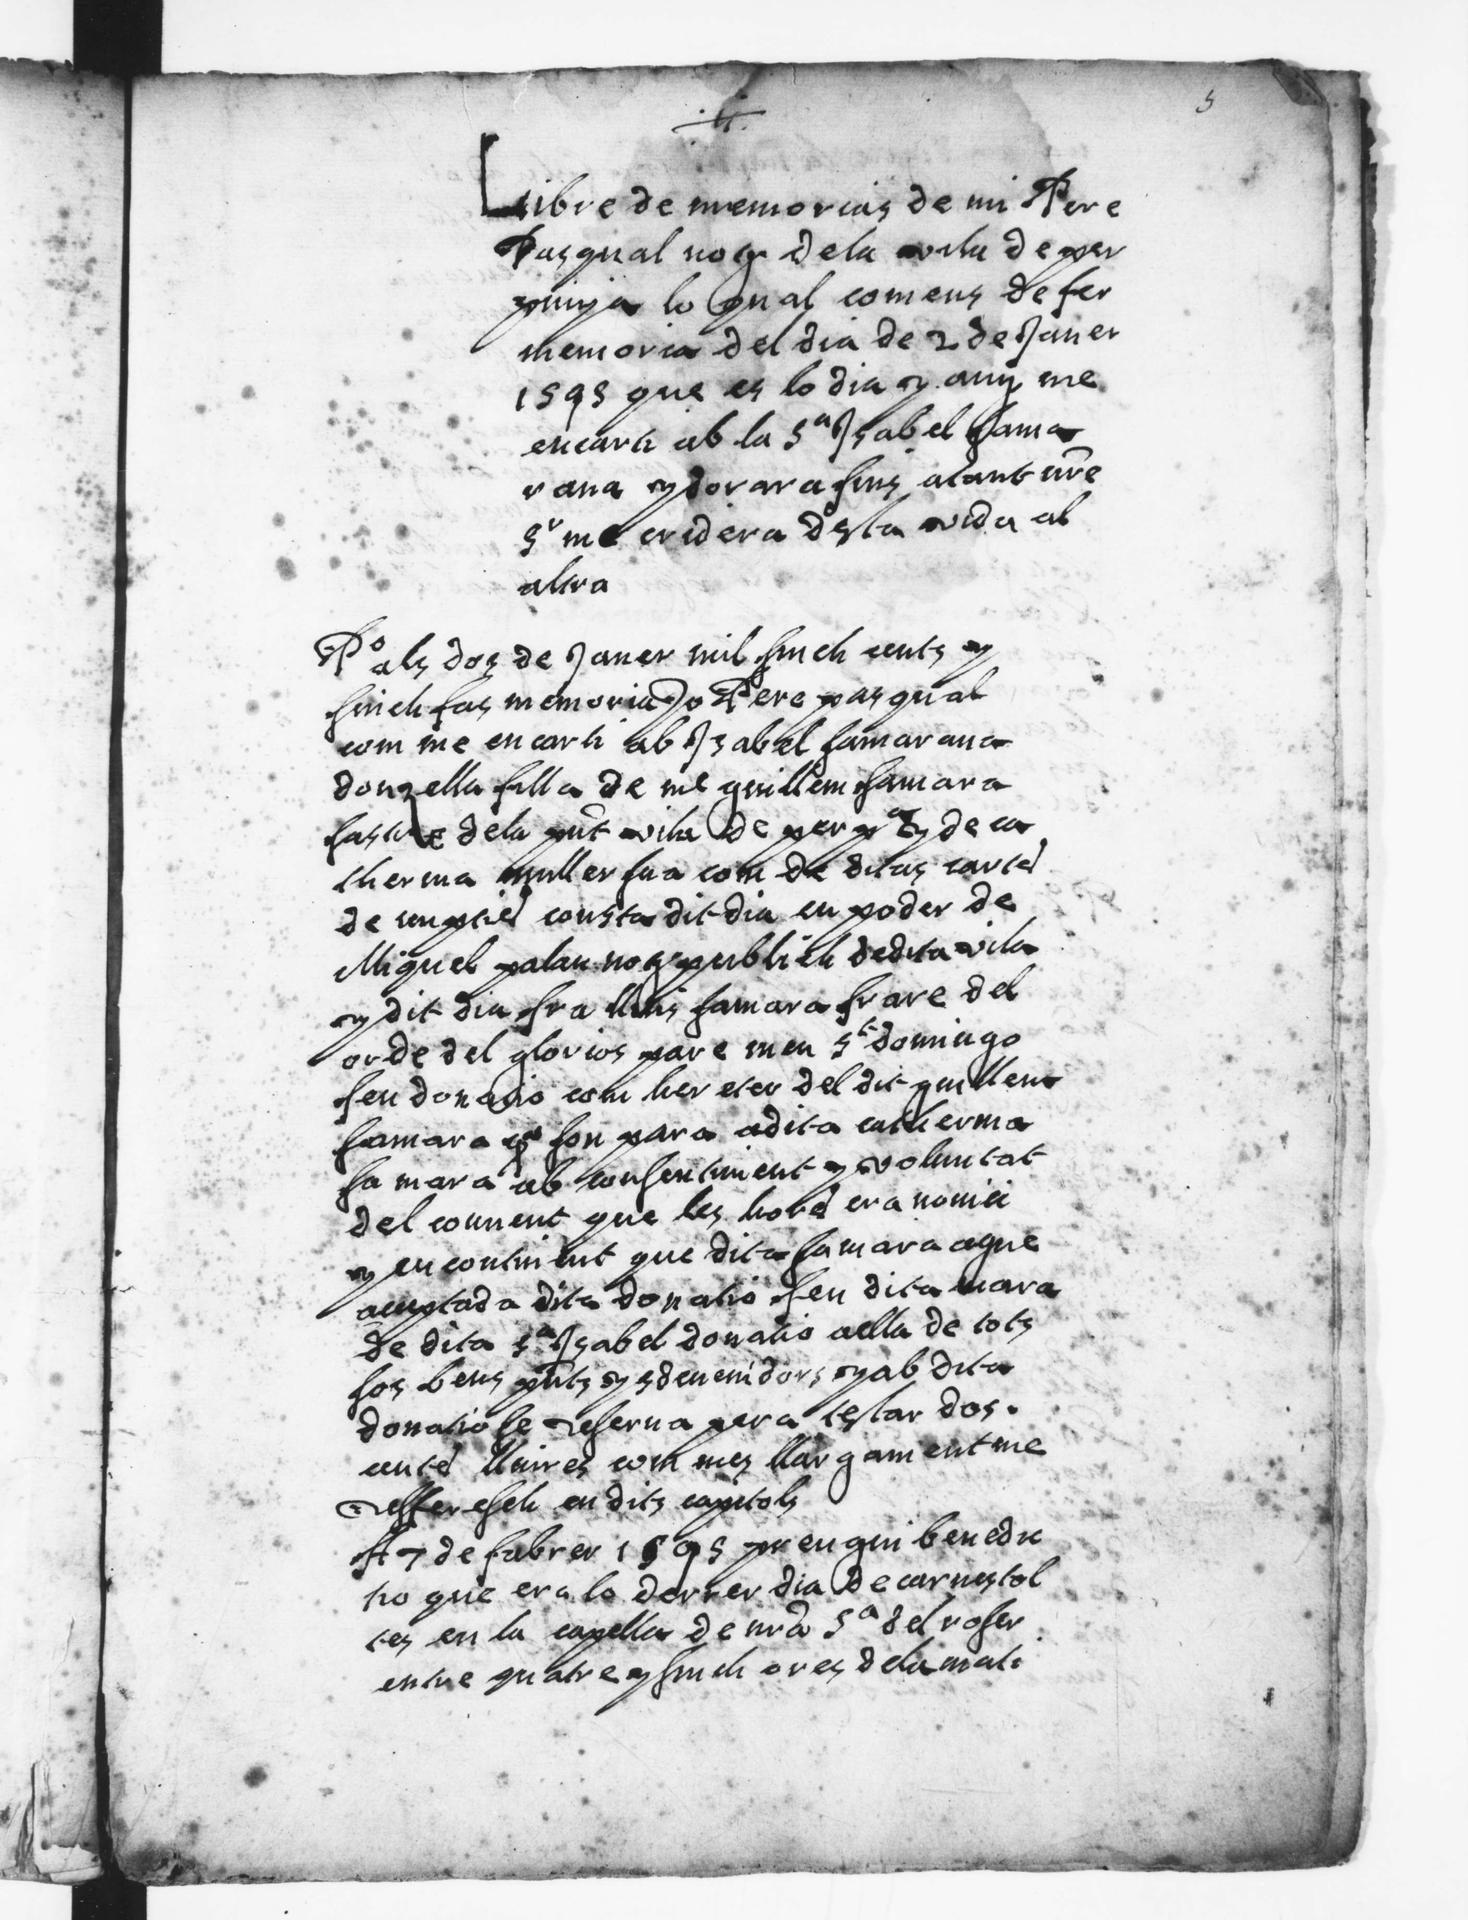 5
Llibre de memorias de mi Pere
Pasqual not dela vila de per
pinya lo qual comens de fer
memoria del dia de 2 de Janer
1595 que es lo dia y any me
encarti ab la Sª Isabel sama
rana y dorara fins atant nre
Sr me cridera desta vida al
altra
Pº als dos de Janer mil sinch cents y
sinch fas memoria Jo Pere pasqual
com me encarti ab Isabel samarana
donzella filla de me guillem samara
sastre dela pnt vila de perpª y de ca
therina muller sua com de ditas cartes
de nupties consta dit dia en poder de
Miquel palau not publich de dita vila
y dit dia fra lluis samara frare del
orde del glorios pare meu St domingo
feu donatio com hereter del dit guillem
samara qº son para a dita catherina
sa mara ab consentiment y voluntat
del convent que les hores era
y encontinent que dita sa mara ague
acceptada dita donatio feu dita mara
de dita Sª Isabel donatio aella de tots
sos bens pnts y esdevenidors y ab dita
donatio se reserva pera testar dos
centes lliures com mes llargament me
reffereseh en dits capitols
A 7 de fabrer 1595 prengui benedic
tio que era lo derrer dia de carnestol
tes en la capella de nra Sª del roser
entre quatre y sinch ores dela mati